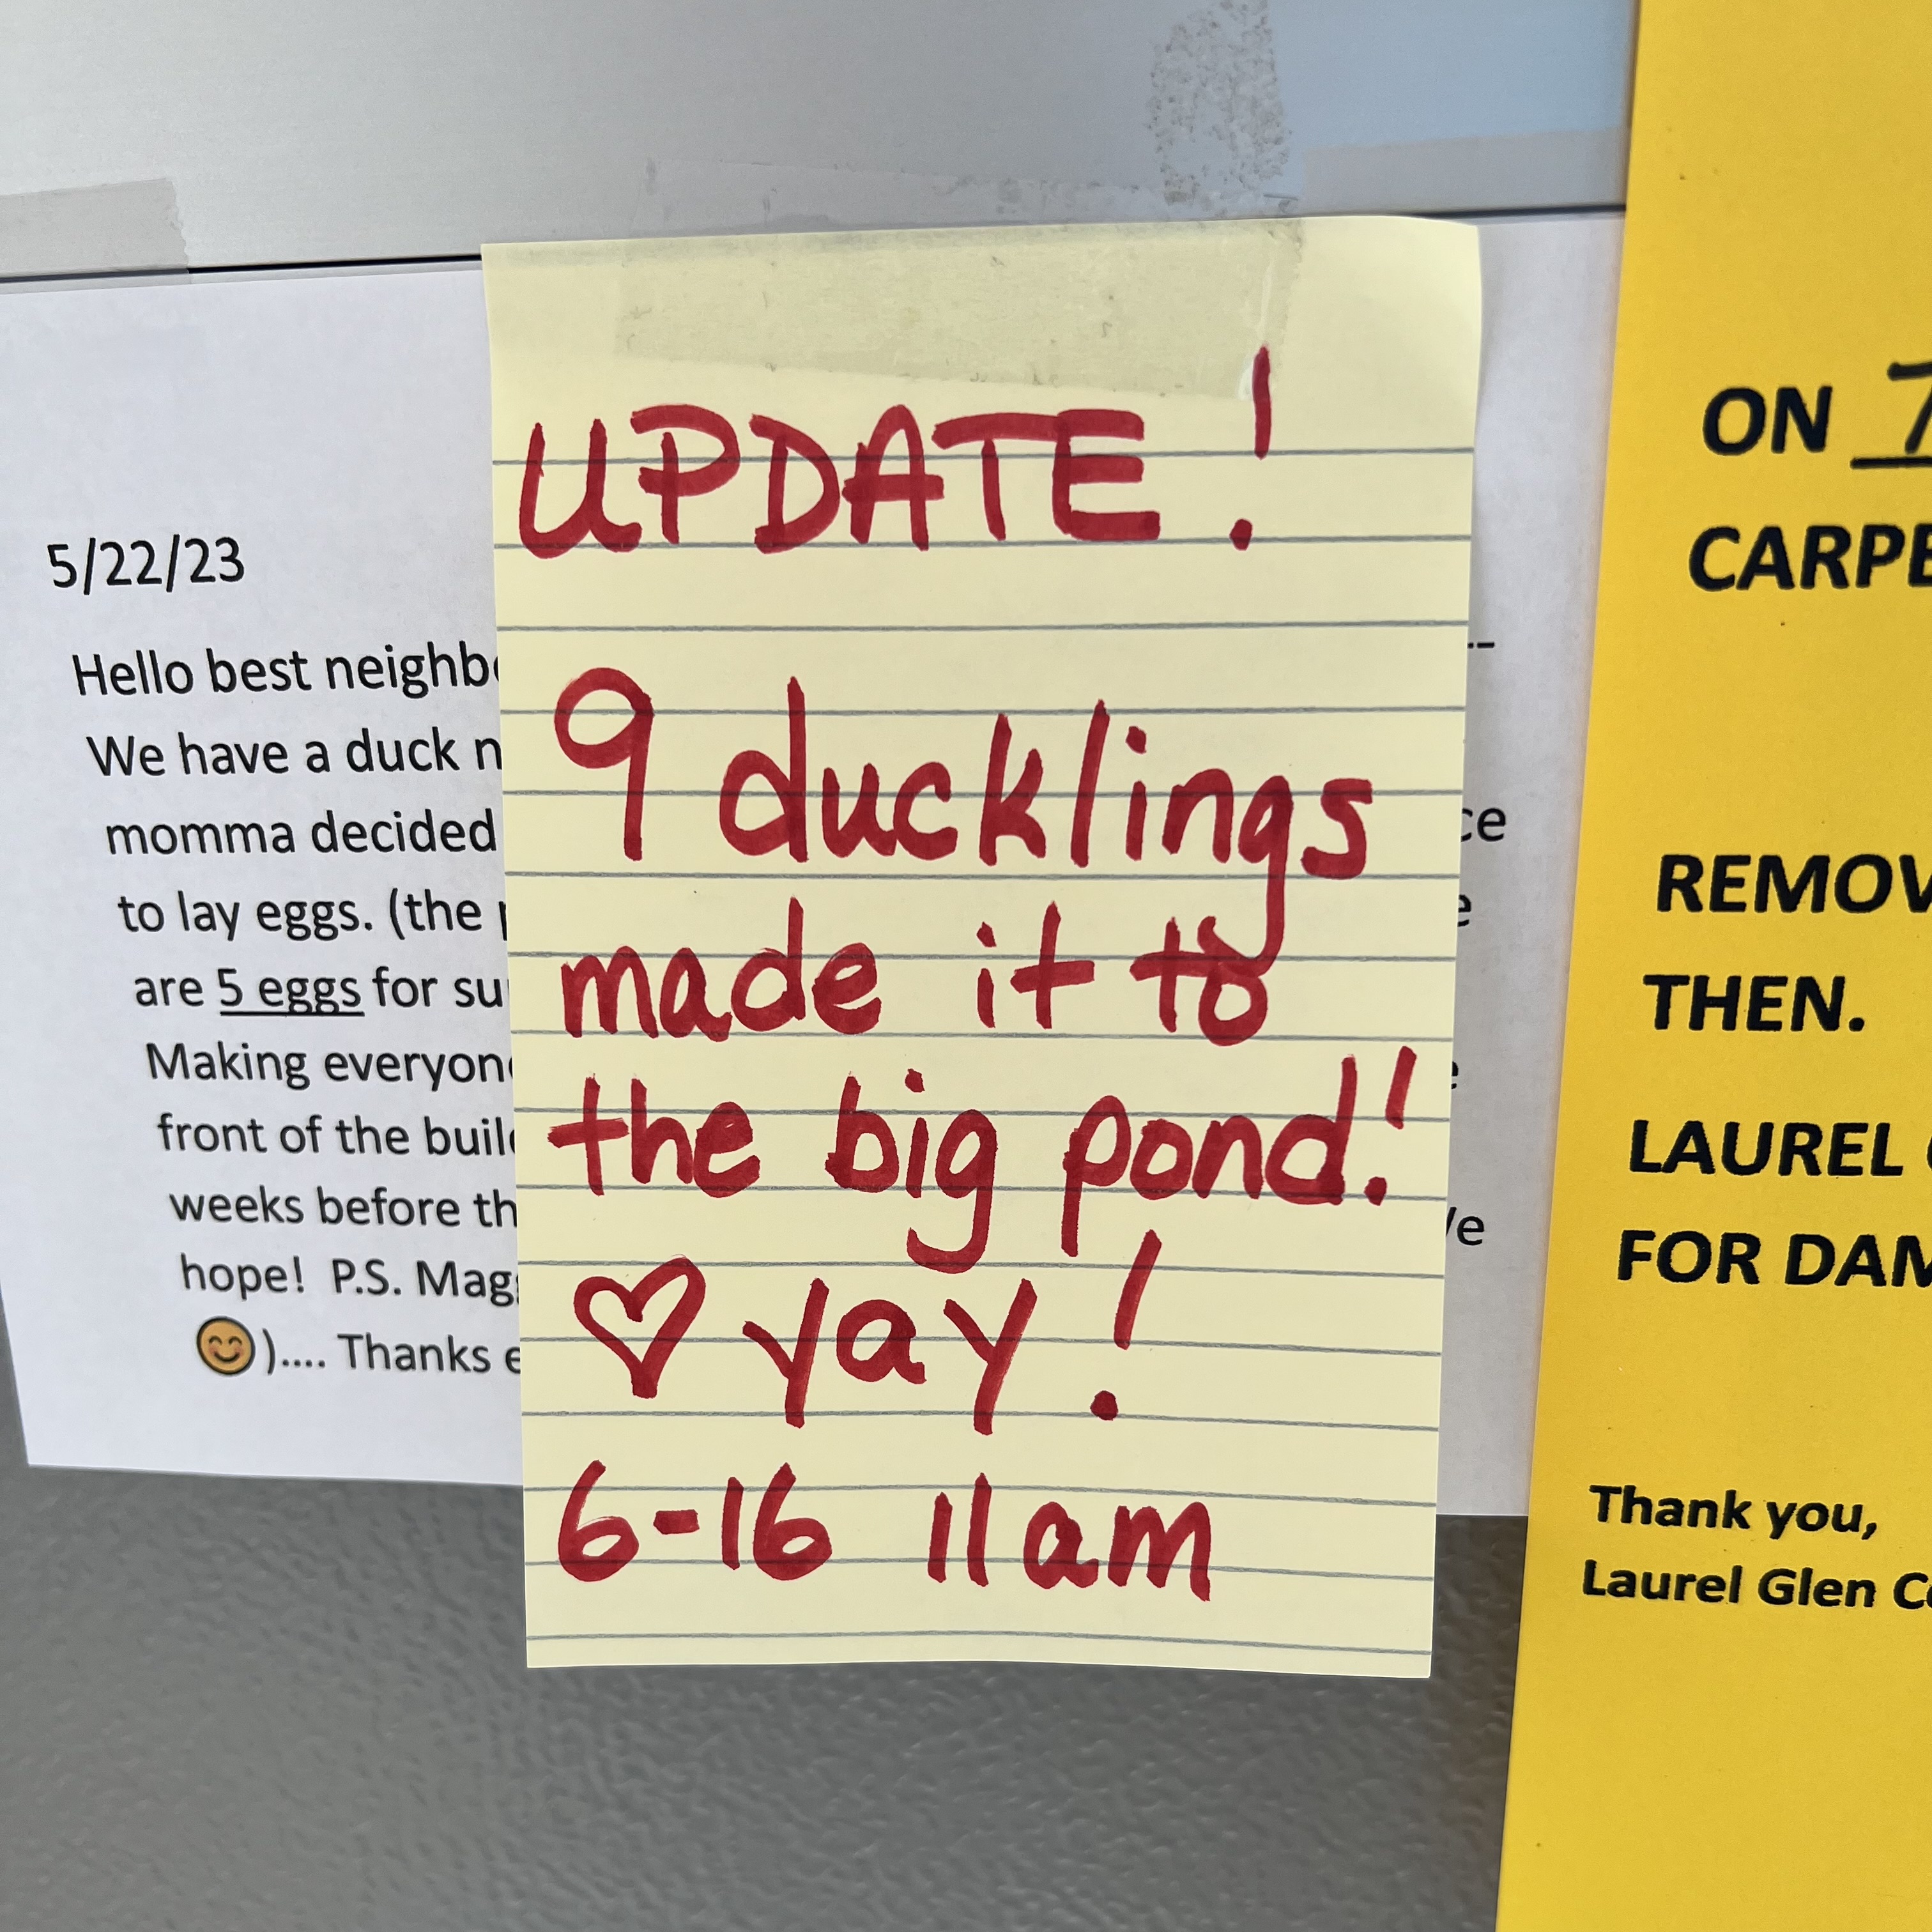 5/22/23
Hello best neighb
We have a duck n
momma decided
to lay eggs. (the
are 5 eggs for su
Making everyon
front of the buil
weeks before th
hope! P.S. Mag
😊).... Thanks e
UPDATE!
9 ducklings
made it to
the big pond!
♡ yay!
6-16 11am
--
ce
e
e
ve
ON 7
CARPE
REMOV
THEN.
LAUREL
FOR DAM
Thank you,
Laurel Glen Co